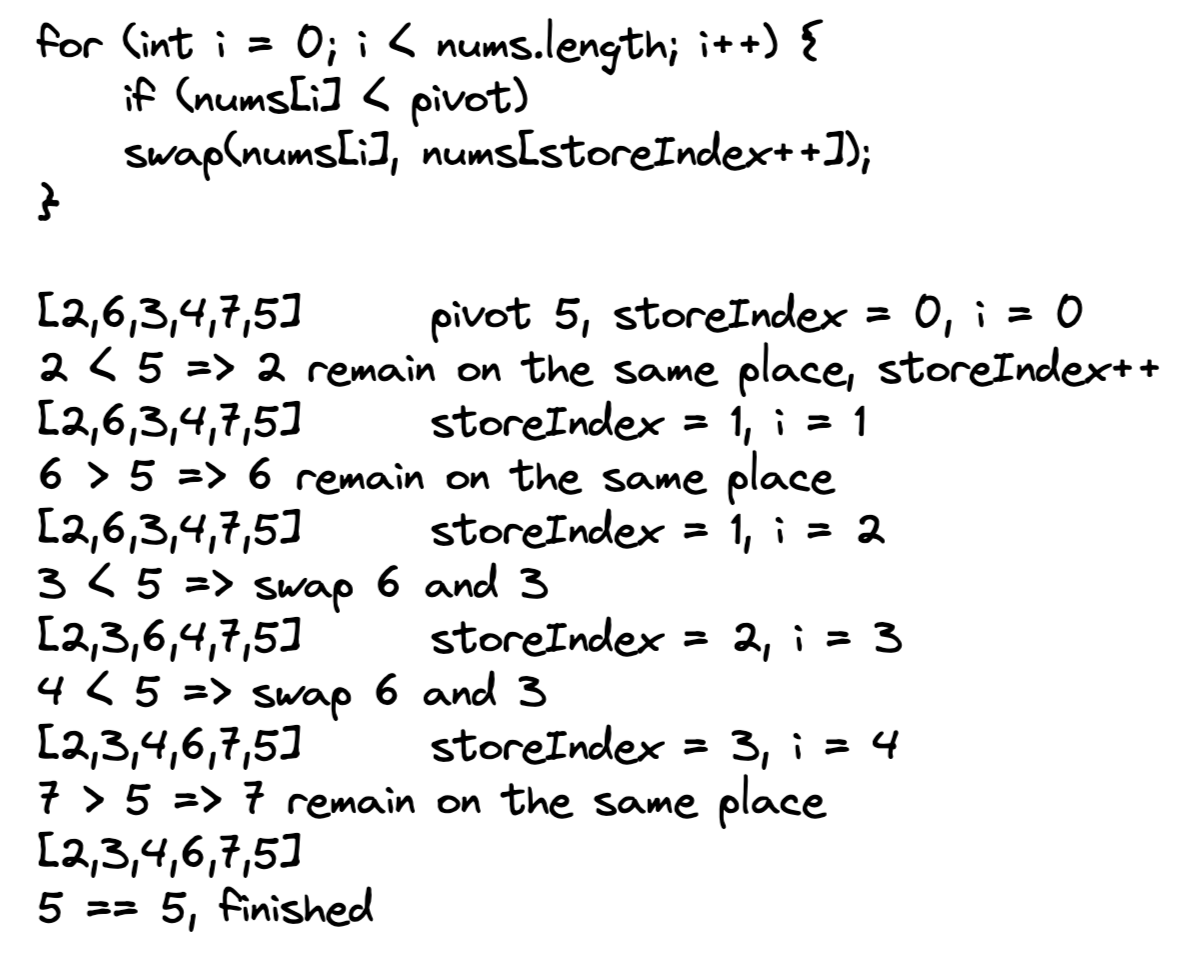 for (int i = 0; i < nums.length; i++) {
if (nums[i] < pivot)
swap(nums[i], nums[storeIndex++]);
}
[2,6,3,4,7,5] pivot 5, storeIndex = 0, i = 0
2 < 5 => 2 remain on the same place, storeIndex++
[2,6,3,4,7,5] storeIndex = 1, i = 1
6 > 5 => 6 remain on the same place
[2,6,3,4,7,5] storeIndex = 1, i = 2
3 < 5 => swap 6 and 3
[2,3,6,4,7,5] storeIndex = 2, i = 3
4 < 5 => swap 6 and 3
[2,3,4,6,7,5] storeIndex = 3, i = 4
7 > 5 => 7 remain on the same place
[2,3,4,6,7,5]
5 == 5, finished